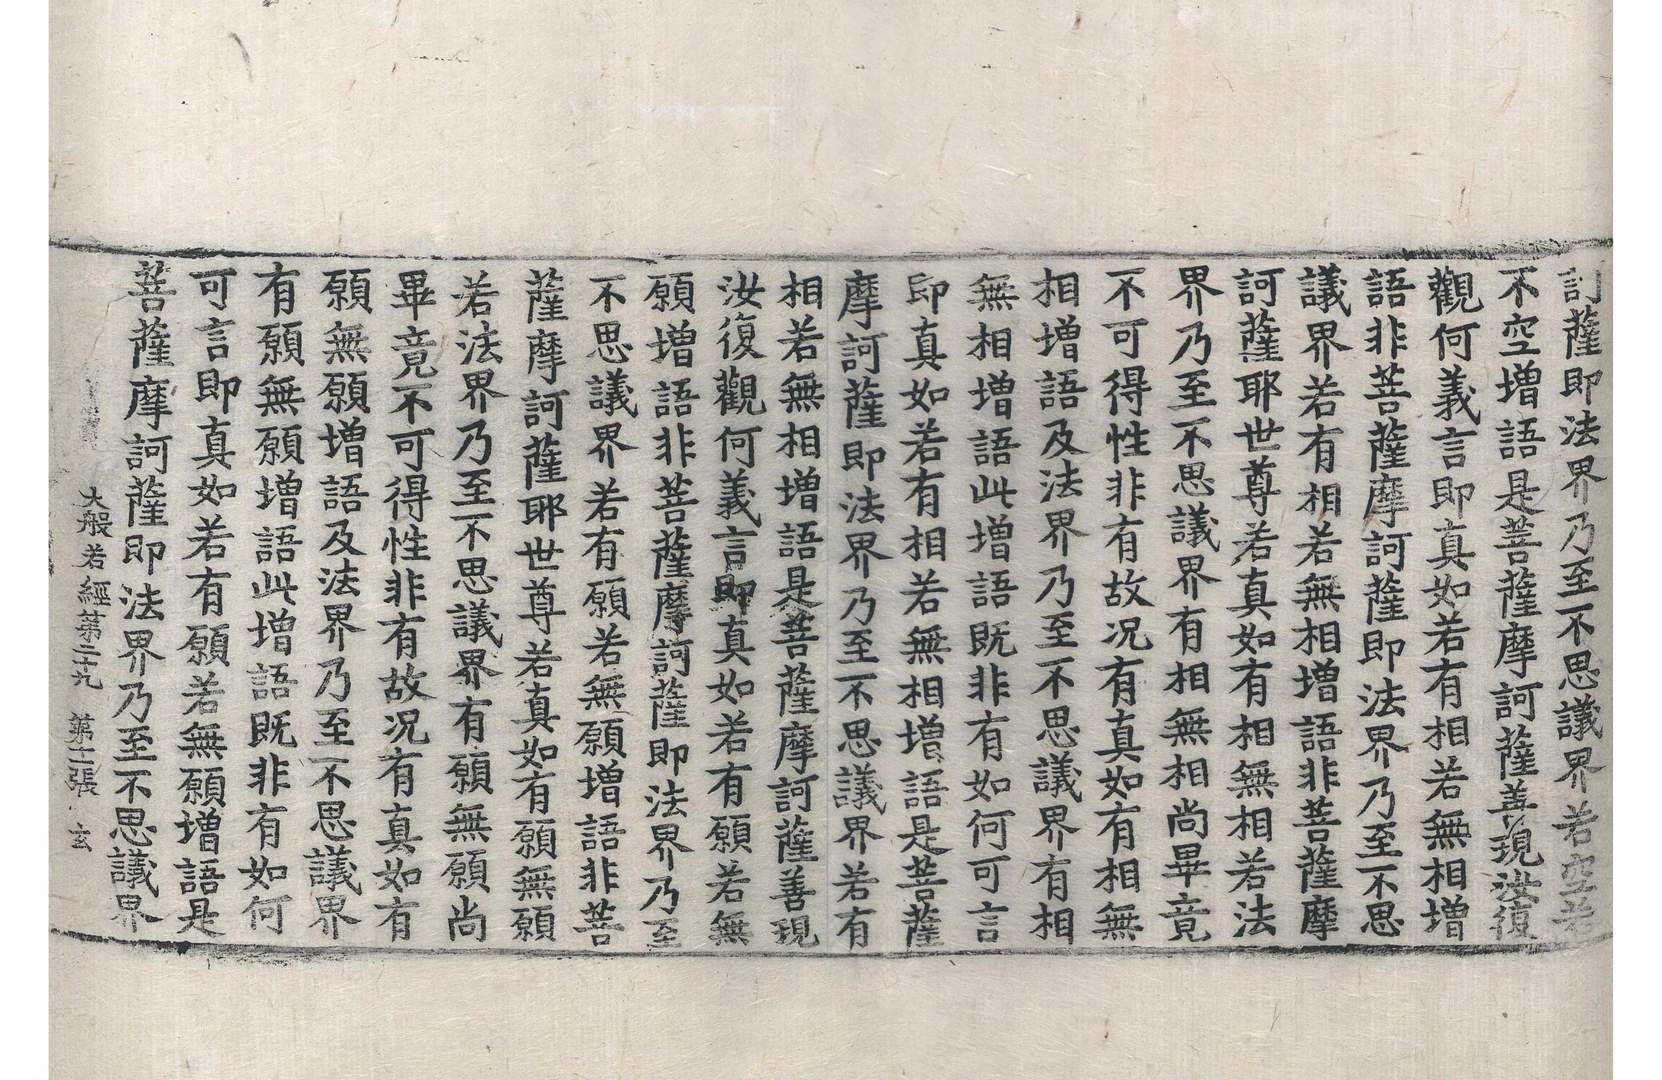 訶薩即法界乃至不思議界若空若
不空增語是菩薩摩訶薩善現汝復
觀何義言即真如若有相若無相增
語非菩薩摩訶薩即法界乃至不思
議界若有相若無相增語非菩薩摩
訶薩耶世尊若真如有相無相若法
界乃至不思議界有相無相尚畢竟
不可得性非有故况有真如有相無
相增語及法界乃至不思議界有相
無相增語此增語既非有如何可言
即真如若有相若無相增語是菩薩
摩訶薩即法界乃至不思議界若有
相若無相增語是菩薩摩訶薩善現
汝復觀何義言即真如若有願若無
願增語非菩薩摩訶薩即法界乃至
不思議界若有願若無願增語非菩
薩摩訶薩耶世尊若真如有願無願
若法界乃至不思議界有願無願尚
畢竟不可得性非有故况有真如有
願無願增語及法界乃至不思議界
有願無願增語此增語既非有如何
可言即真如若有願若無願增語是
菩薩摩訶薩即法界乃至不思議界
大般若經第二十九 第十一張 玄